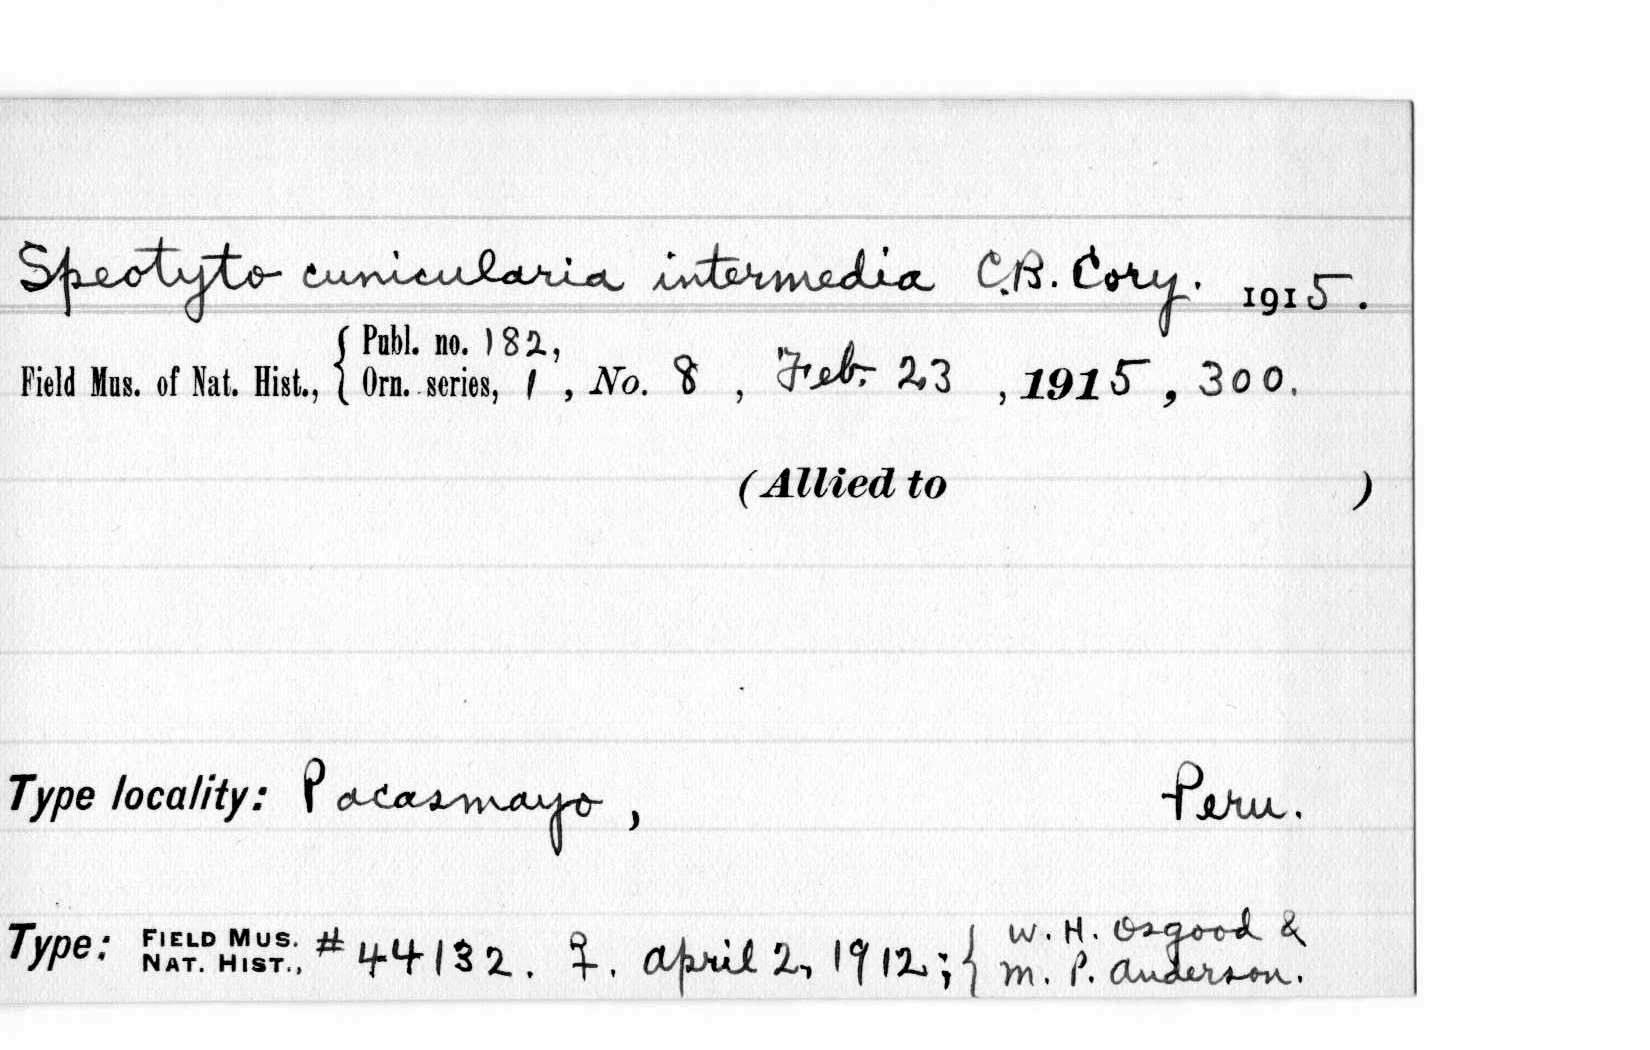 Speotyto cunicularia intermedia C.B. Cory. 1915.
Publ. no. 182,
Field Mus. of Nat. Hist., Orn. series, 1, No. 8, Feb. 23, 1915, 300.
(Allied to )
Type locality: Pacasmayo, Peru.
Type: FIELD MUS. NAT. HIST., # 44132. ♀. April 2, 1912; { W. H. Osgood &
M. P. Anderson.